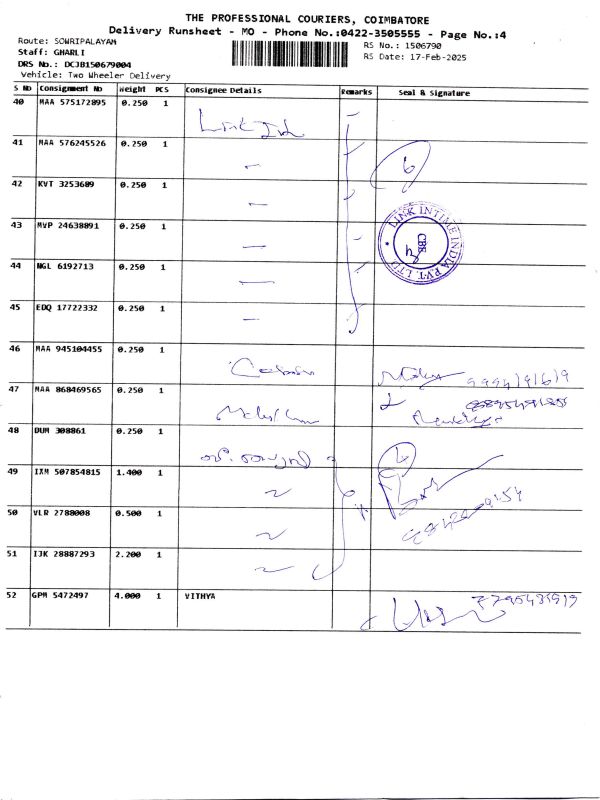 THE PROFESSIONAL COURIERS, COIMBATORE
Delivery Runsheet - MO - Phone No.:0422-3505555 - Page No.:4
Route: SOWRIPALAYAM
RS No.: 1506790
Staff: GHARLI
RS Date: 17-Feb-2025
DRS No.: DCJB150679004
Vehicle: Two Wheeler Delivery
S No Consignment No Weight PCS Consignee Details Remarks Seal & Signature
40 MAA 575172895 0.250 1
41 MAA 576245526 0.250 1
6
42 KVT 3253689 0.250 1
43 MVP 24638891 0.250 1
LINK INTIME INDIA PVT. LTD
CBE
44 NGL 6192713 0.250 1
45 EDQ 17722332 0.250 1
46 MAA 945104455 0.250 1
47 MAA 868469565 0.250 1
48 DUM 308861 0.250 1
49 IXM 507854815 1.400 1
50 VLR 2788008 0.500 1
51 IJK 28887293 2.200 1
52 GPM 5472497 4.000 1 VITHYA